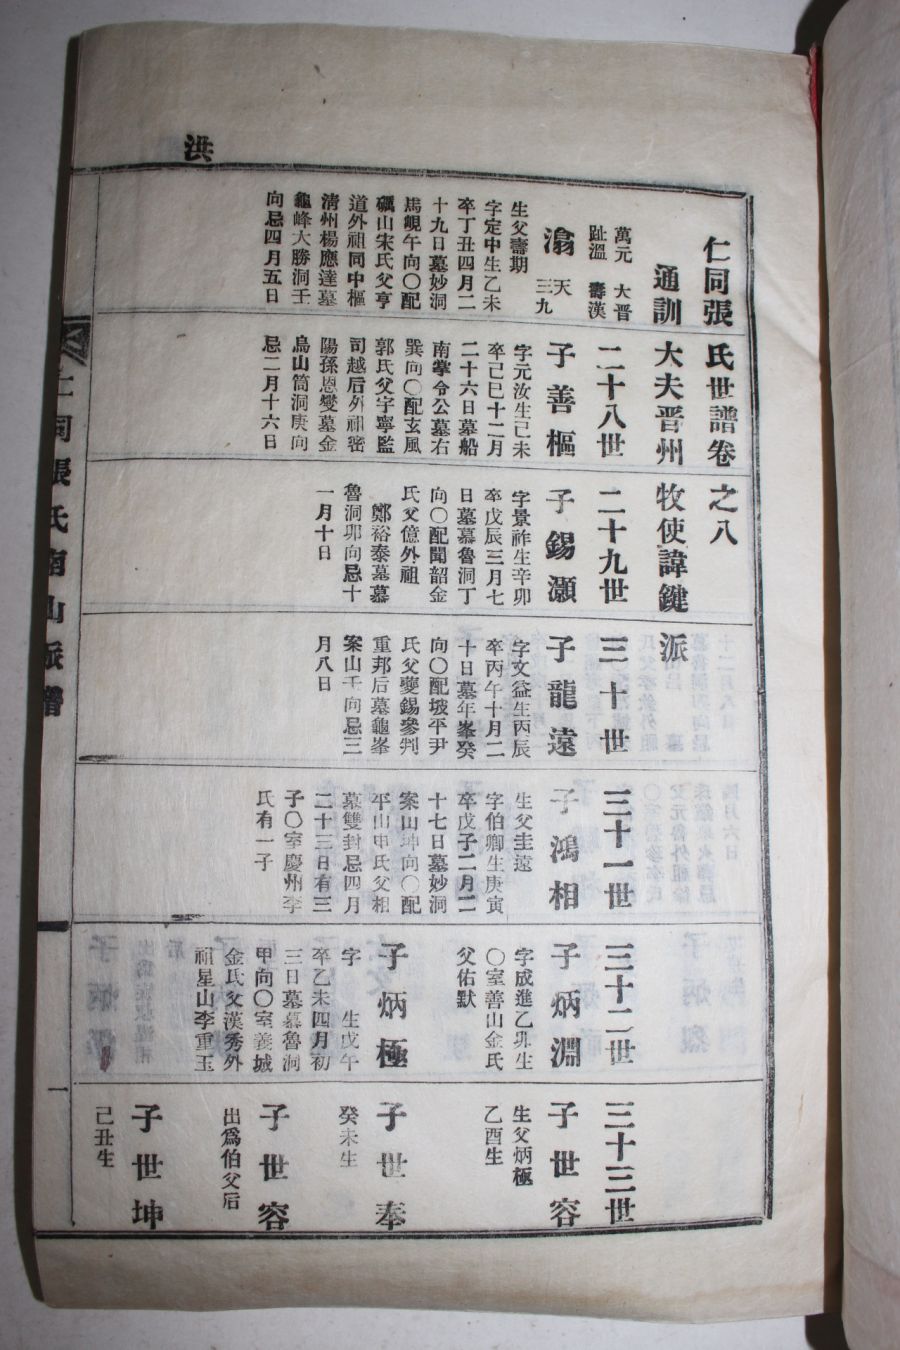 洪
仁同張氏世譜卷之八
通訓大夫晋州牧使諱鍵派
萬元 大晋
趾溫 壽漢
滃
天
三九
生父壽期
字定中生乙未
卒丁丑四月二
十九日墓妙洞
馬峴午向〇配
礪山宋氏父亨
道外祖同中樞
清州楊應達墓
龜峰大勝洞壬
向忌四月五日
二十八世
子善樞
字元汝生己未
卒己巳十二月
二十六日墓船
南掌令公墓右
巽向〇配玄風
郭氏父宇寧監
司越后外祖密
陽孫恩燮墓金
烏山筒洞庚向
忌二月十六日
二十九世
子錫灝
字景祚生辛卯
卒戊辰三月七
日墓慕魯洞丁
向〇配聞韶金
氏父億外祖
鄭裕泰墓慕
魯洞卯向忌十
一月十日
三十世
子龍遠
字文益生丙辰
卒丙午十月二
十日墓年峯癸
向〇配坡平尹
氏父夔錫參判
重邦后墓龜峯
案山壬向忌三
月八日
三十一世
子鴻相
生父圭遠
字伯卿生庚寅
卒戊子二月二
十七日墓妙洞
案山坤向〇配
平山申氏父相
墓雙封忌四月
二十三日有三
子〇室慶州李
氏有一子
三十二世
子炳淵
字成進乙卯生
〇室善山金氏
父佑默
子炳極
字 生戊午
卒乙未四月初
三日墓慕魯洞
甲向〇室義城
金氏父漢秀外
祖星山李重玉
三十三世
子世容
生父炳極
乙酉生
子世奉
癸未生
子世容
出爲伯父后
子世坤
己丑生
仁同張氏南山派譜
一